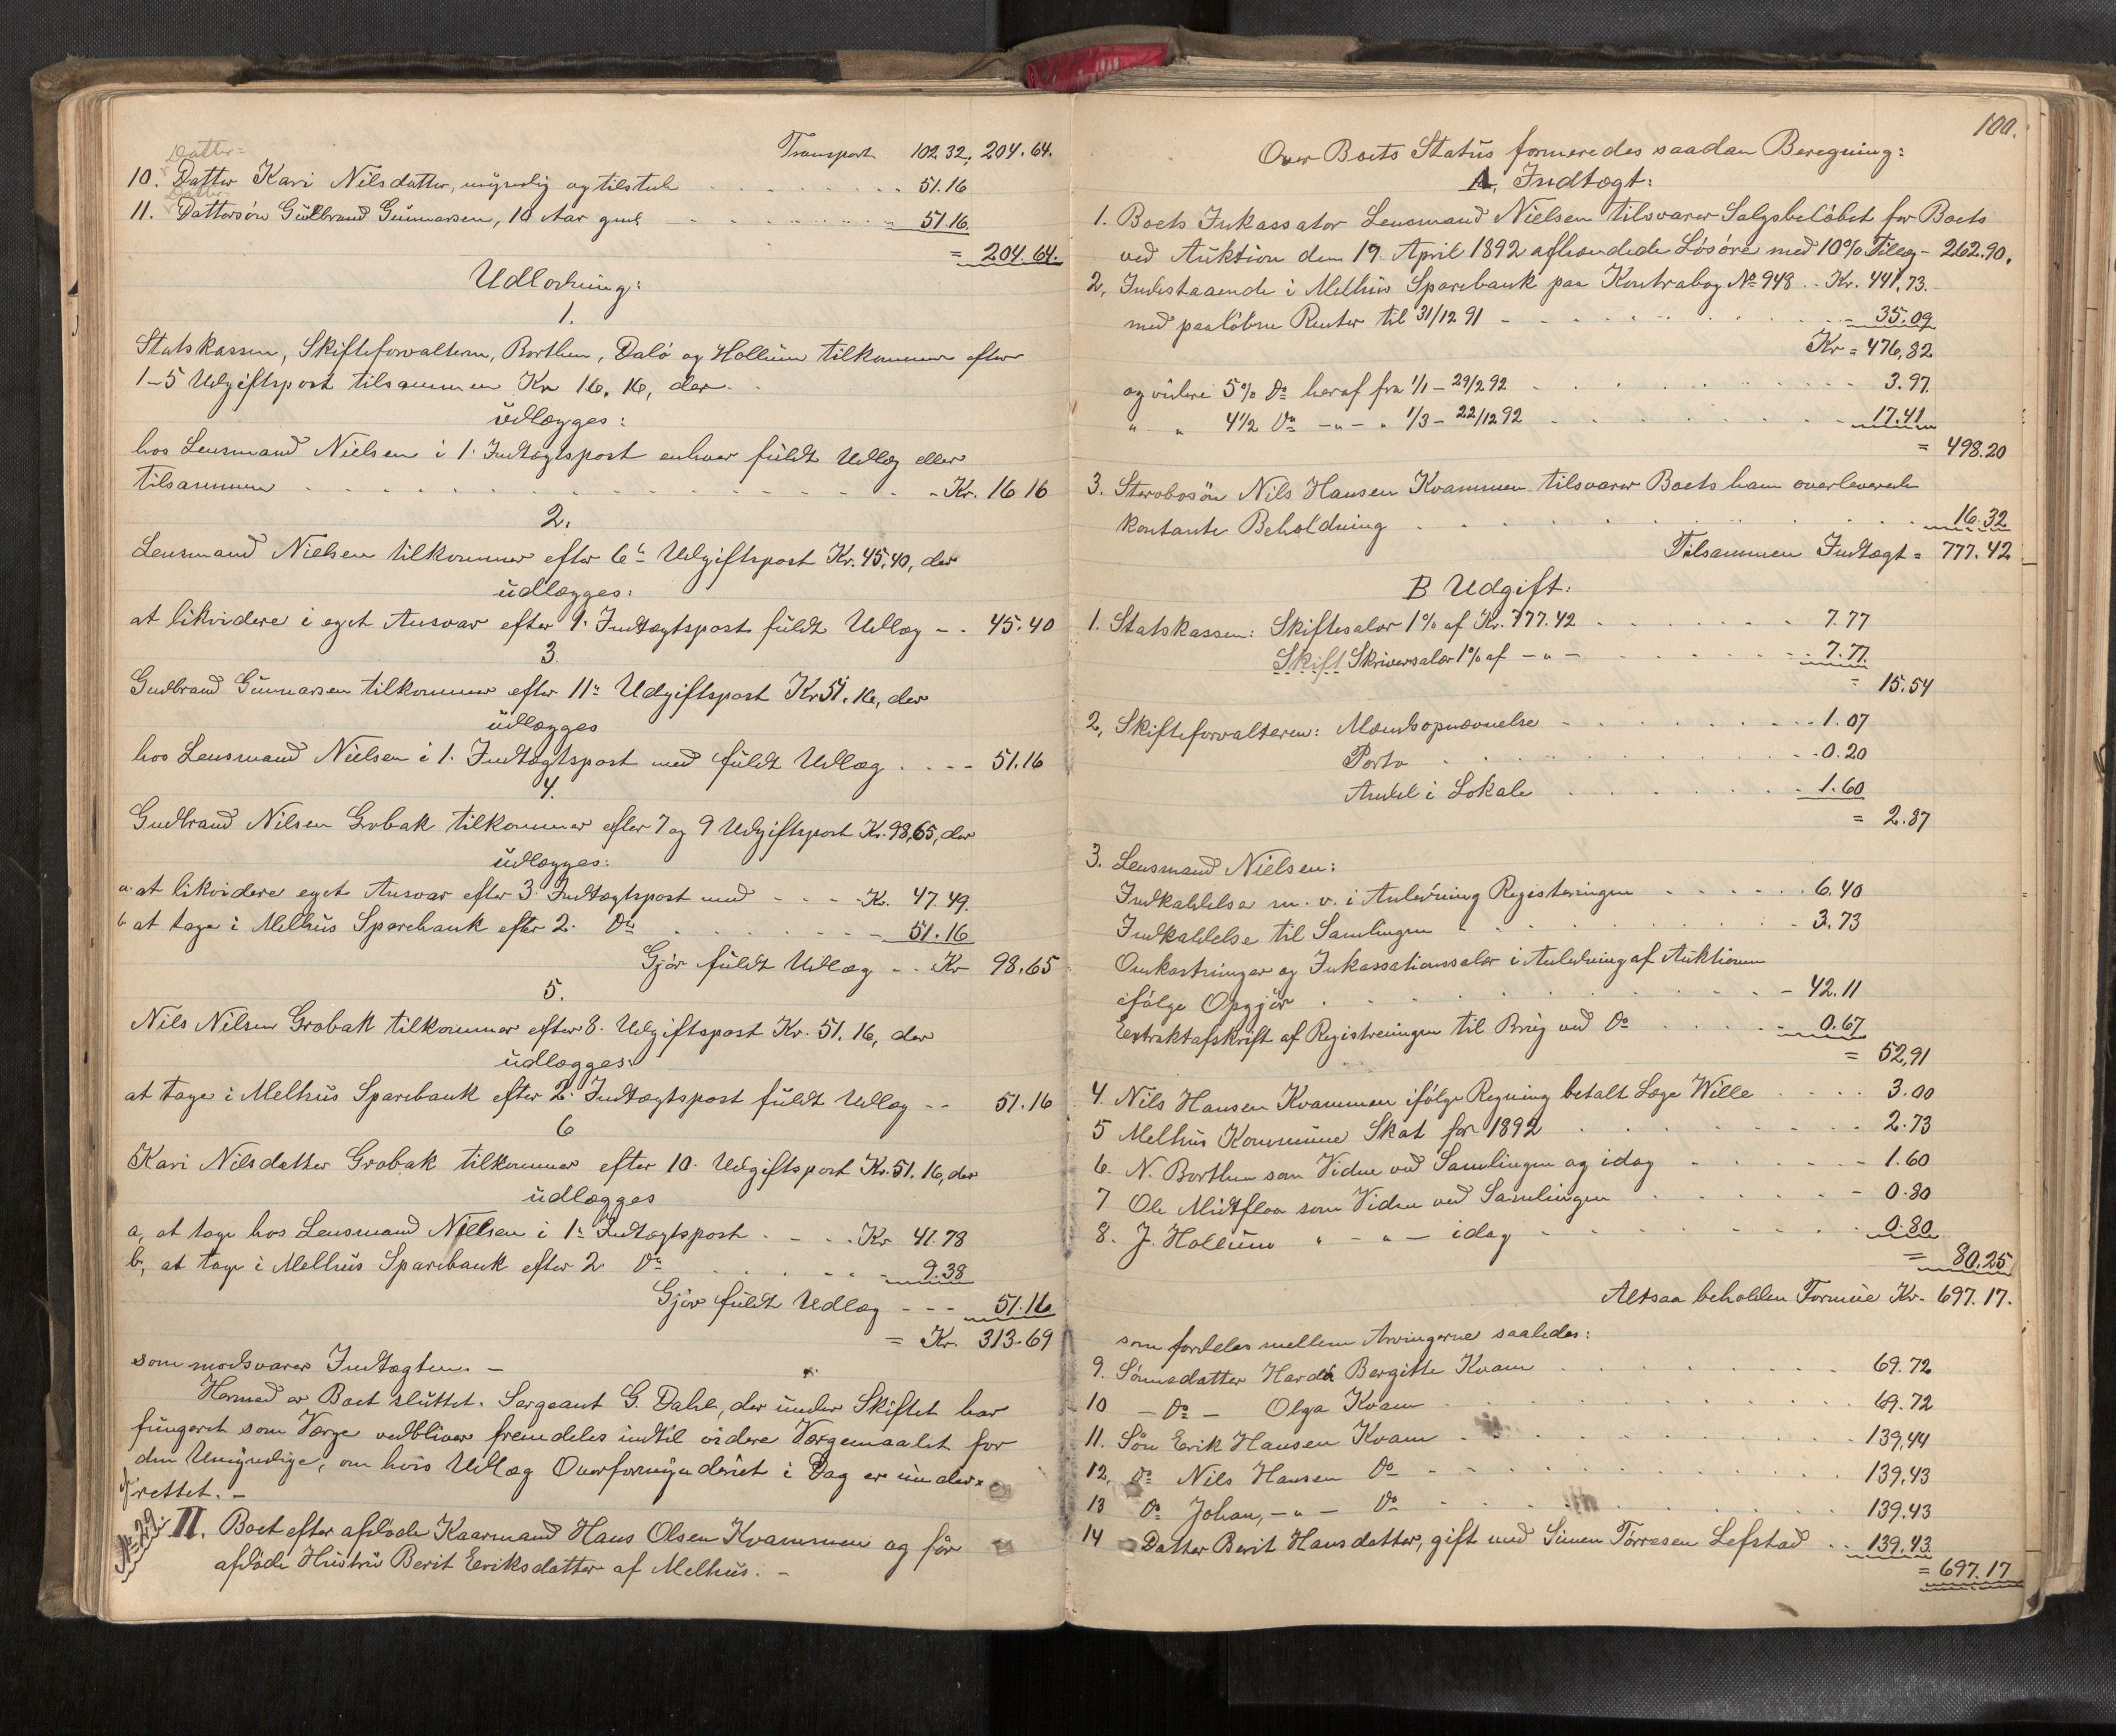 Transport 102.32, 204.64.
Datter=
10. Datter Kari Nilsdatter, umyndig og tilstede 51.16
Datter
11. Dattersön Gudbrand Gunnarsen, 10 Aar gml. = 51.16.
= 204.64.
Udlodning:
1.
Statskassen, Skifteforvalteren, Borthen, Dalö og Hollum tilkommer efter
1-5 Udgiftspost tilsammen Kr 16.16, der
udlægges:
hos Lensmand Nielsen i 1. Indtægtspost enhver fuldt Udlæg eller
tilsammen Kr. 16 16
2.
Lensmand Nielsen tilkommer efter 6te Udgiftspost Kr. 45,40, der
udlægges:
at likvidere i eget Ansvar efter 1. Indtægtspost fuldt Udlæg 45.40
3.
Gudbrand Gunnarsen tilkommer efter 11te Udgiftspost Kr 51.16, der
udlægges
hos Lensmand Nielsen i 1. Indtægtspost med fuldt Udlæg 51.16
4.
Gudbrand Nilsen Grobak tilkommer efter 7 og 9 Udgiftspost Kr. 98,65, der
udlægges:
a. at likvidere eget Ansvar efter 3. Indtægtspost med Kr. 47.49.
b at tage i Melhus Sparebank efter 2. Do 51.16
Gjör fuldt Udlæg Kr 98.65
5.
Nils Nilsen Grobak tilkommer efter 8. Udgiftspost Kr. 51.16, der
udlægges:
at tage i Melhus Sparebank efter 2. Indtægtspost fuldt Udlæg 51.16
6
Kari Nilsdatter Grobak tilkommer efter 10. Udgiftspost Kr. 51.16, der
udlægges
a, at tage hos Lensmand Nielsen i 1ste Indtægtspost Kr 41.78
b, at tage i Melhus Sparebank efter 2. Do 9.38
Gjör fuldt Udlæg 51.16
= Kr. 313.69
som modsvarer Indtægten. -
Hermed er Boet sluttet. Sergeant G. Dahl, der under Skiftet har
fungeret som Værge vedbliver fremdeles indtil videre Værgemaalet for
den Umyndige, om hvis Udlæg Overformynderiet i Dag er under=
rettet. -
No 22. II. Boet efter afdöde Kaarmand Hans Olsen Kvammen og för
afdöde Hustru Berit Eriksdatter af Melhus. -
100.
Over Boets Status formeredes saadan Beregning:
A, Indtægt:
1. Boets Inkassator Lensmand Nielsen tilsvarer Salgsbelöbet for Boets
ved Auktion den 19. April 1892 afhændede Lösöre med 10% Tillæg - 262.90.
2, Indestaaende i Melhus Sparebank paa Kontrabog No 948 Kr. 441,73.
med paalöbne Renter til 31/12 91 = 35.09
Kr = 476,82
og videre 5% Do heraf fra 1/1 - 29/2 92 3.97
" " 4½ Do - " - " 1/3 - 22/12 92 17.41
= 498.20
3. Sterbosön Nils Hansen Kvammen tilsvarer Boets ham overleverede
kontante Beholdning 16.32
Tilsammen Indtægt = 777.42
B Udgift:
1. Statskassen: Skiftesalær 1% af Kr. 777.42 7.77
Skift Skriversalær 1% af - " - 7.77.
= 15.54
2, Skifteforvalteren: Mændsopnævnelse 1.07
Porto 0.20
Andel i Lokale 1.60
= 2.87
3. Lensmand Nielsen:
Indkaldelse m. v. i Anledning Registeringen 6.40
Indkaldelse til Samlingen 3.73
Omkostninger og Inkassationssalær i Anledning af Auktionen
ifölge Opgjör 42.11
Extraktafskrift af Registreringen til Brug ved Do 0.67
= 52,91
4. Nils Hansen Kvammen ifölge Regning betalt Læge Wille 3.00
5 Melhus Kommune Skat for 1892 2.73
6. N. Borthen som Vidne ved Samlingen og idag 1.60
7 Ole Midtflaa som Vidne ved Samlingen 0.80
8. J. Hollum " - " - idag 0.80
= 80.25
Altsaa beholden Formue Kr. 697.17.
som fordeles mellem Arvingerne saaledes:
9. Sönnedatter Harda Bergitte Kvam 69.72
10 - Do - Olga Kvam 69.72
11. Sön Erik Hansen Kvam 139,44
12, Do Nils Hansen Do 139,43
13 Do Johan, - " - Do 139.43
14 Datter Berit Hansdatter, gift med Simen Torresen Lefstad 139,43
= 697.17